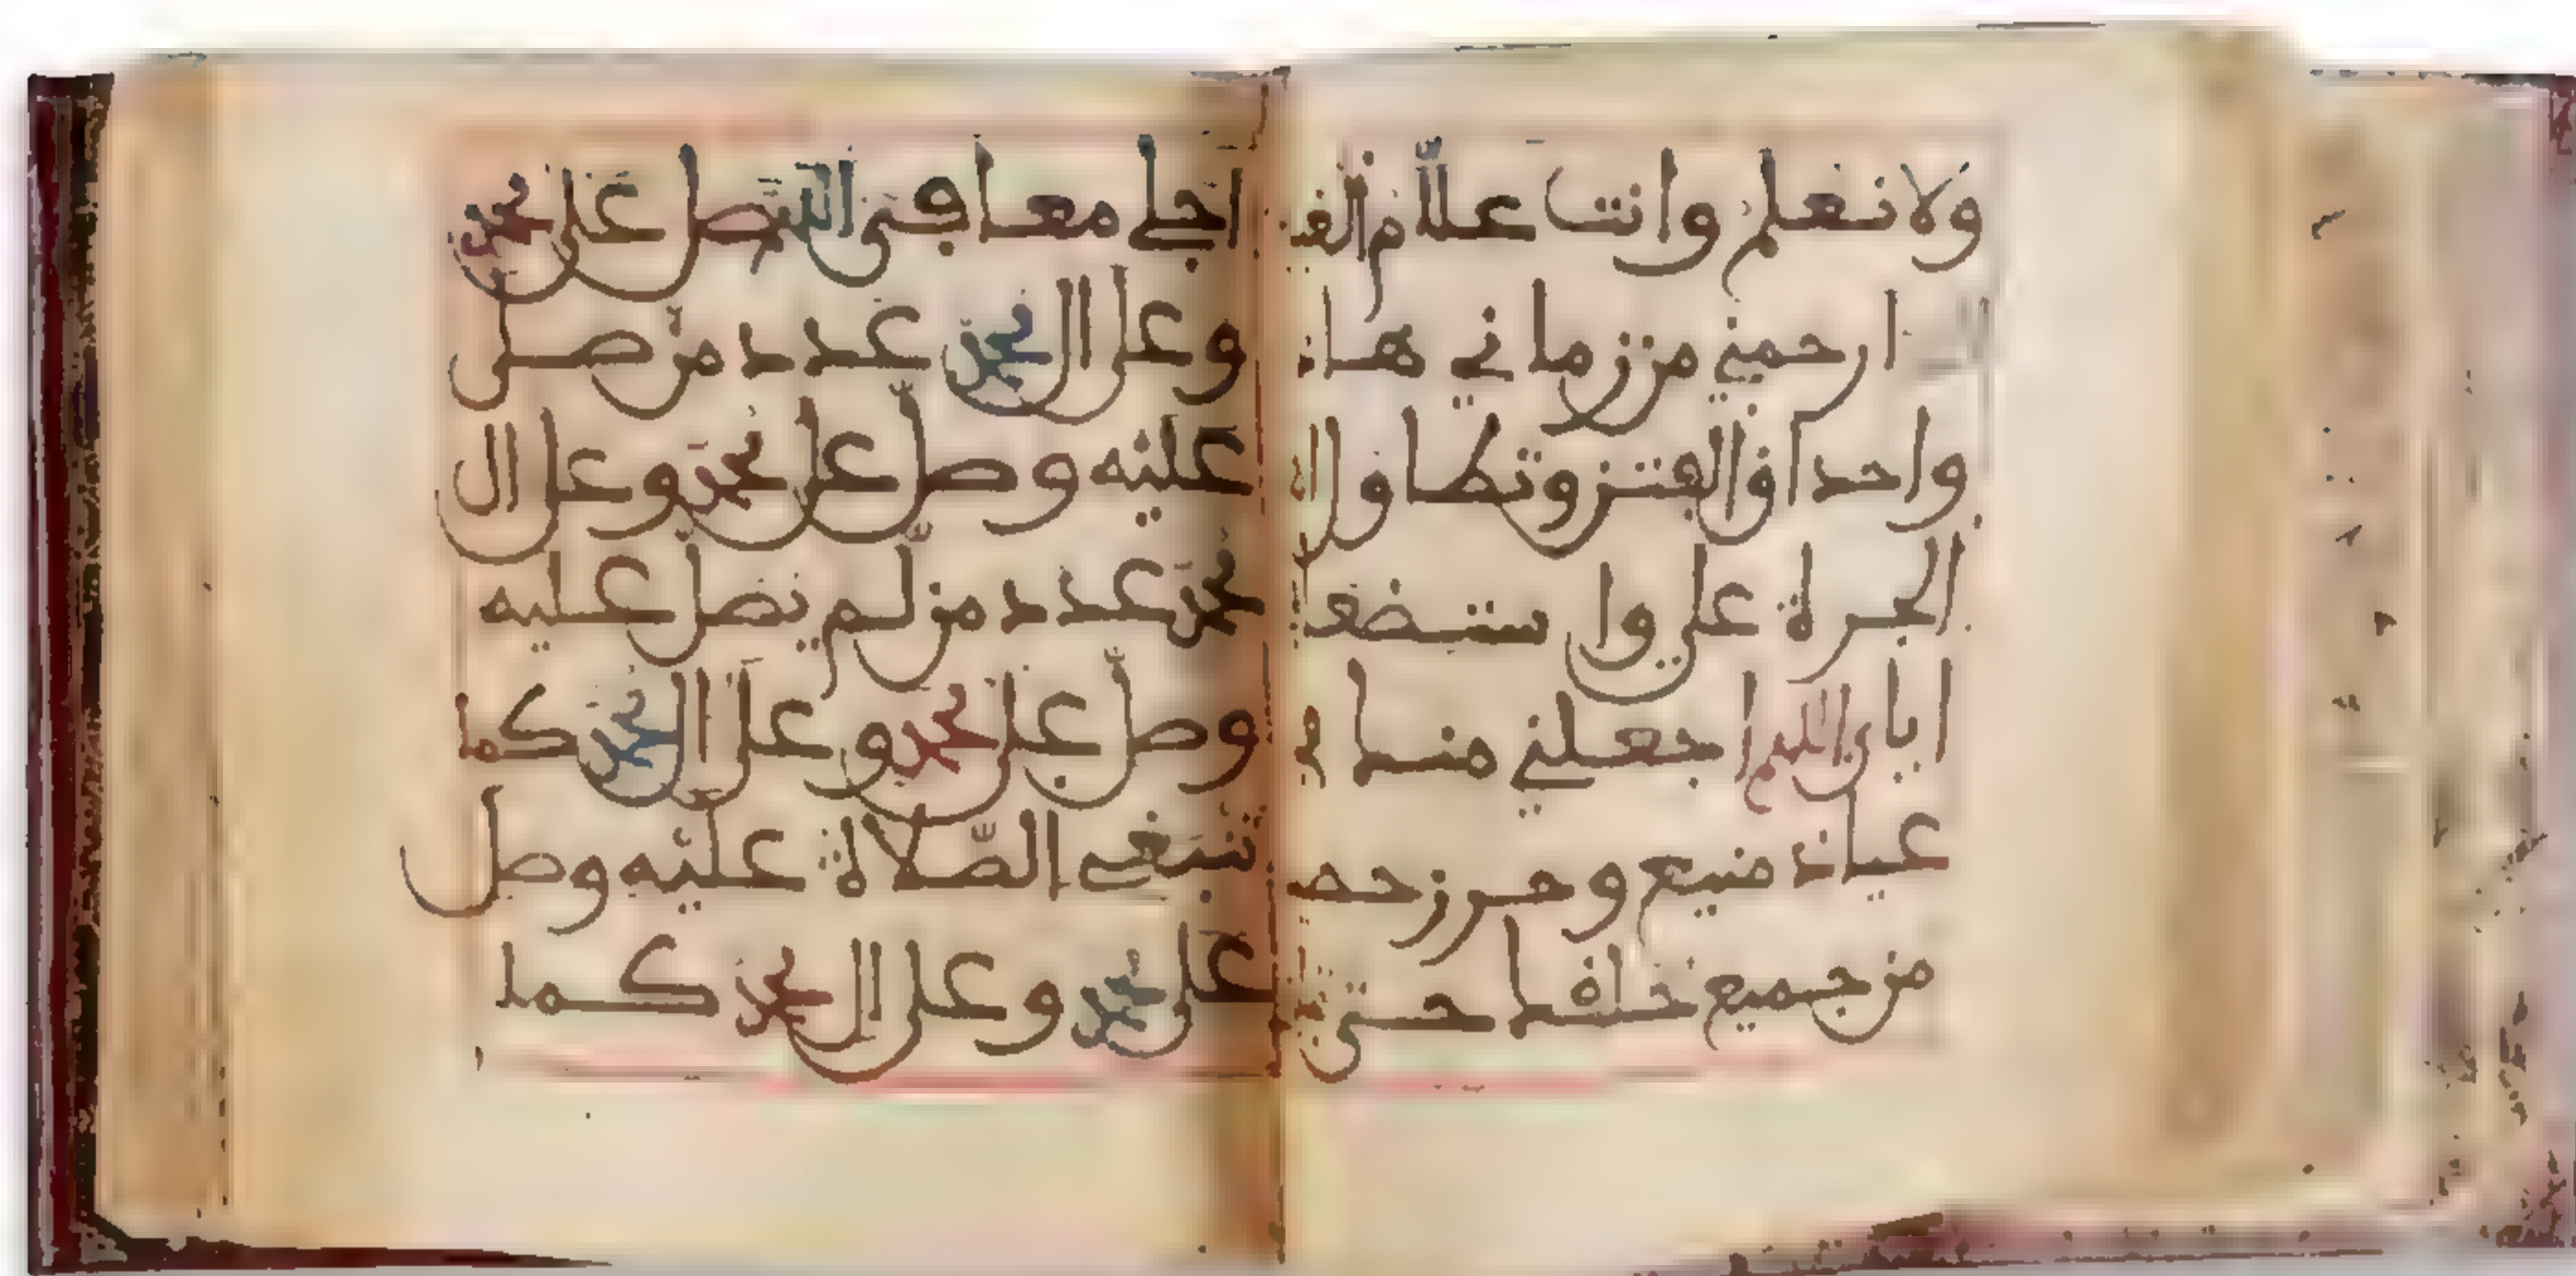 ولا نعلم وانت علام
ارحمني من زماني هاذ
واحداق الفتن وتطاول
الجرءة علي واستضعا
اياي اللهم اجعلني منك في
عياذ منيع وحرز حص
من جميع خلقك حتى
اجلي معافى اللهم صل على محمد
وعلى ال محمد عدد من صلى
عليه وصل على محمد وعلى ال
محمد عدد من لم يصل عليه
وصل على محمد وعلى ال محمد كما
تنبغي الصلاة عليه وصل
على محمد وعلى ال محمد كما